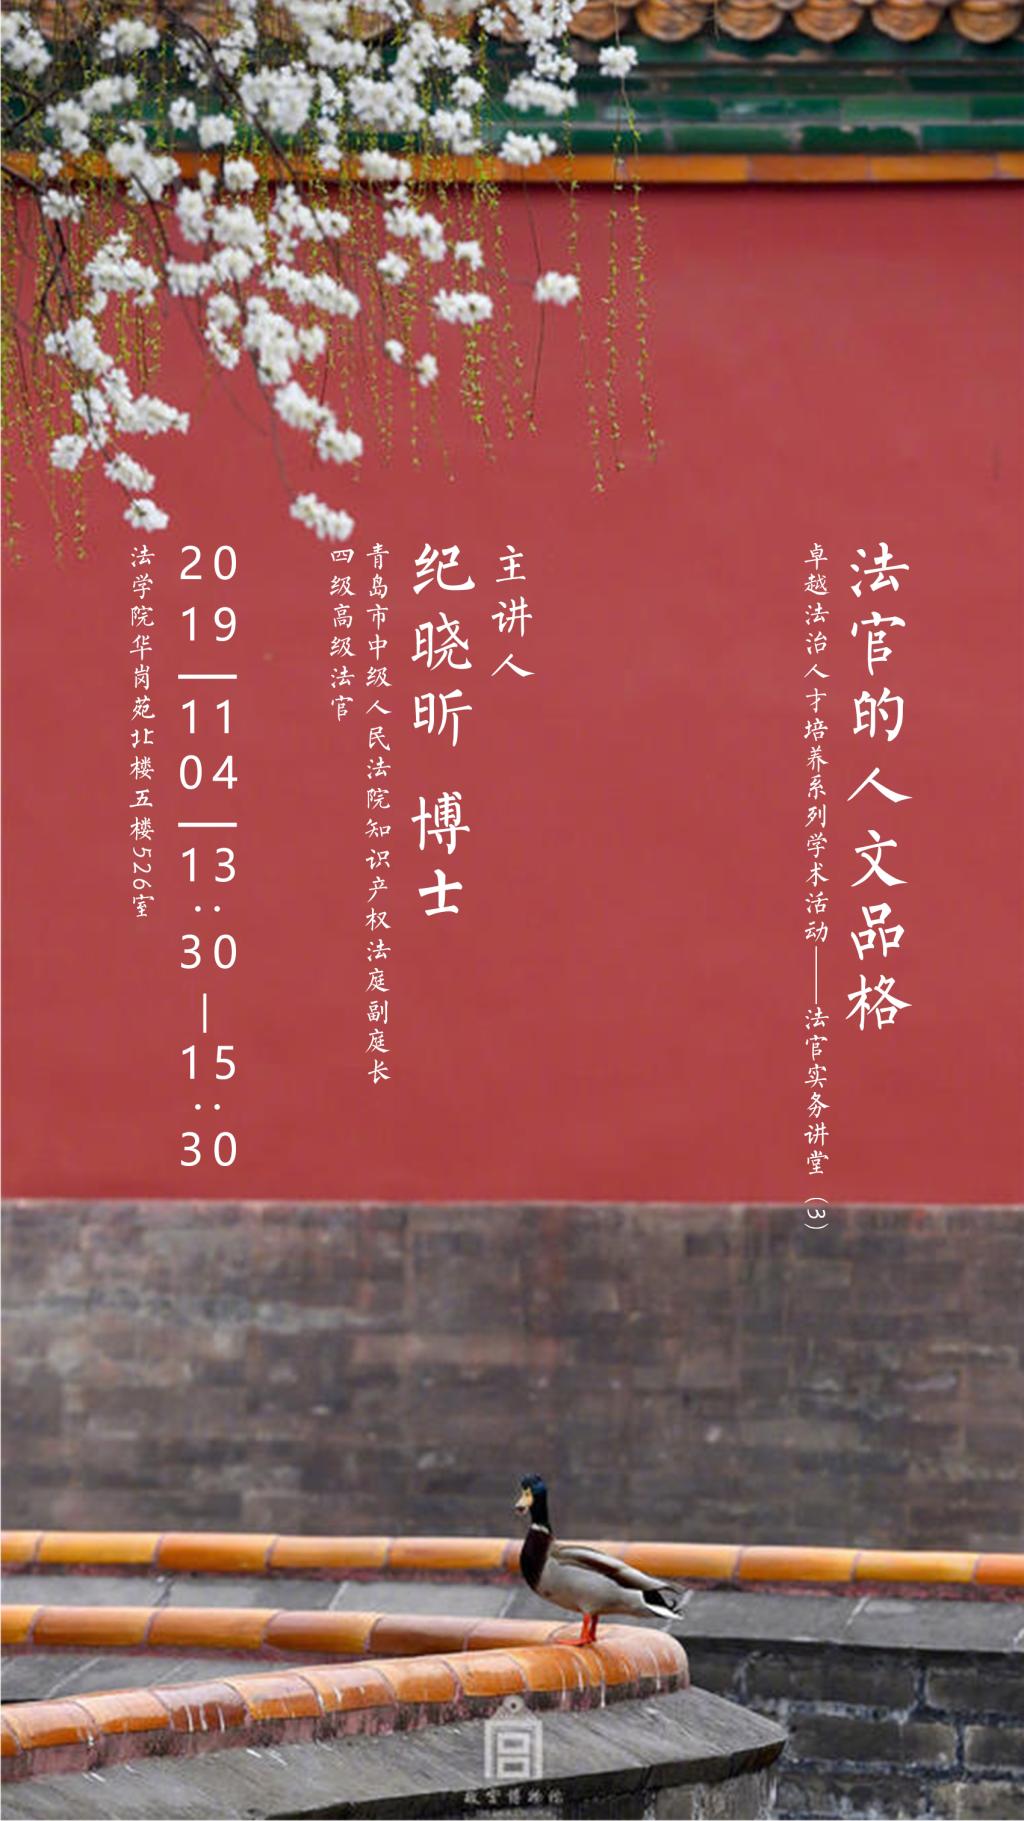 法官的人文品格
卓越法治人才培养系列学术活动——法官实务讲堂（3）
主讲人
纪晓昕 博士
青岛市中级人民法院知识产权法庭副庭长
四级高级法官
2019—1104—13:30—15:30
法学院华岗苑北楼五楼526室
故宫博物院